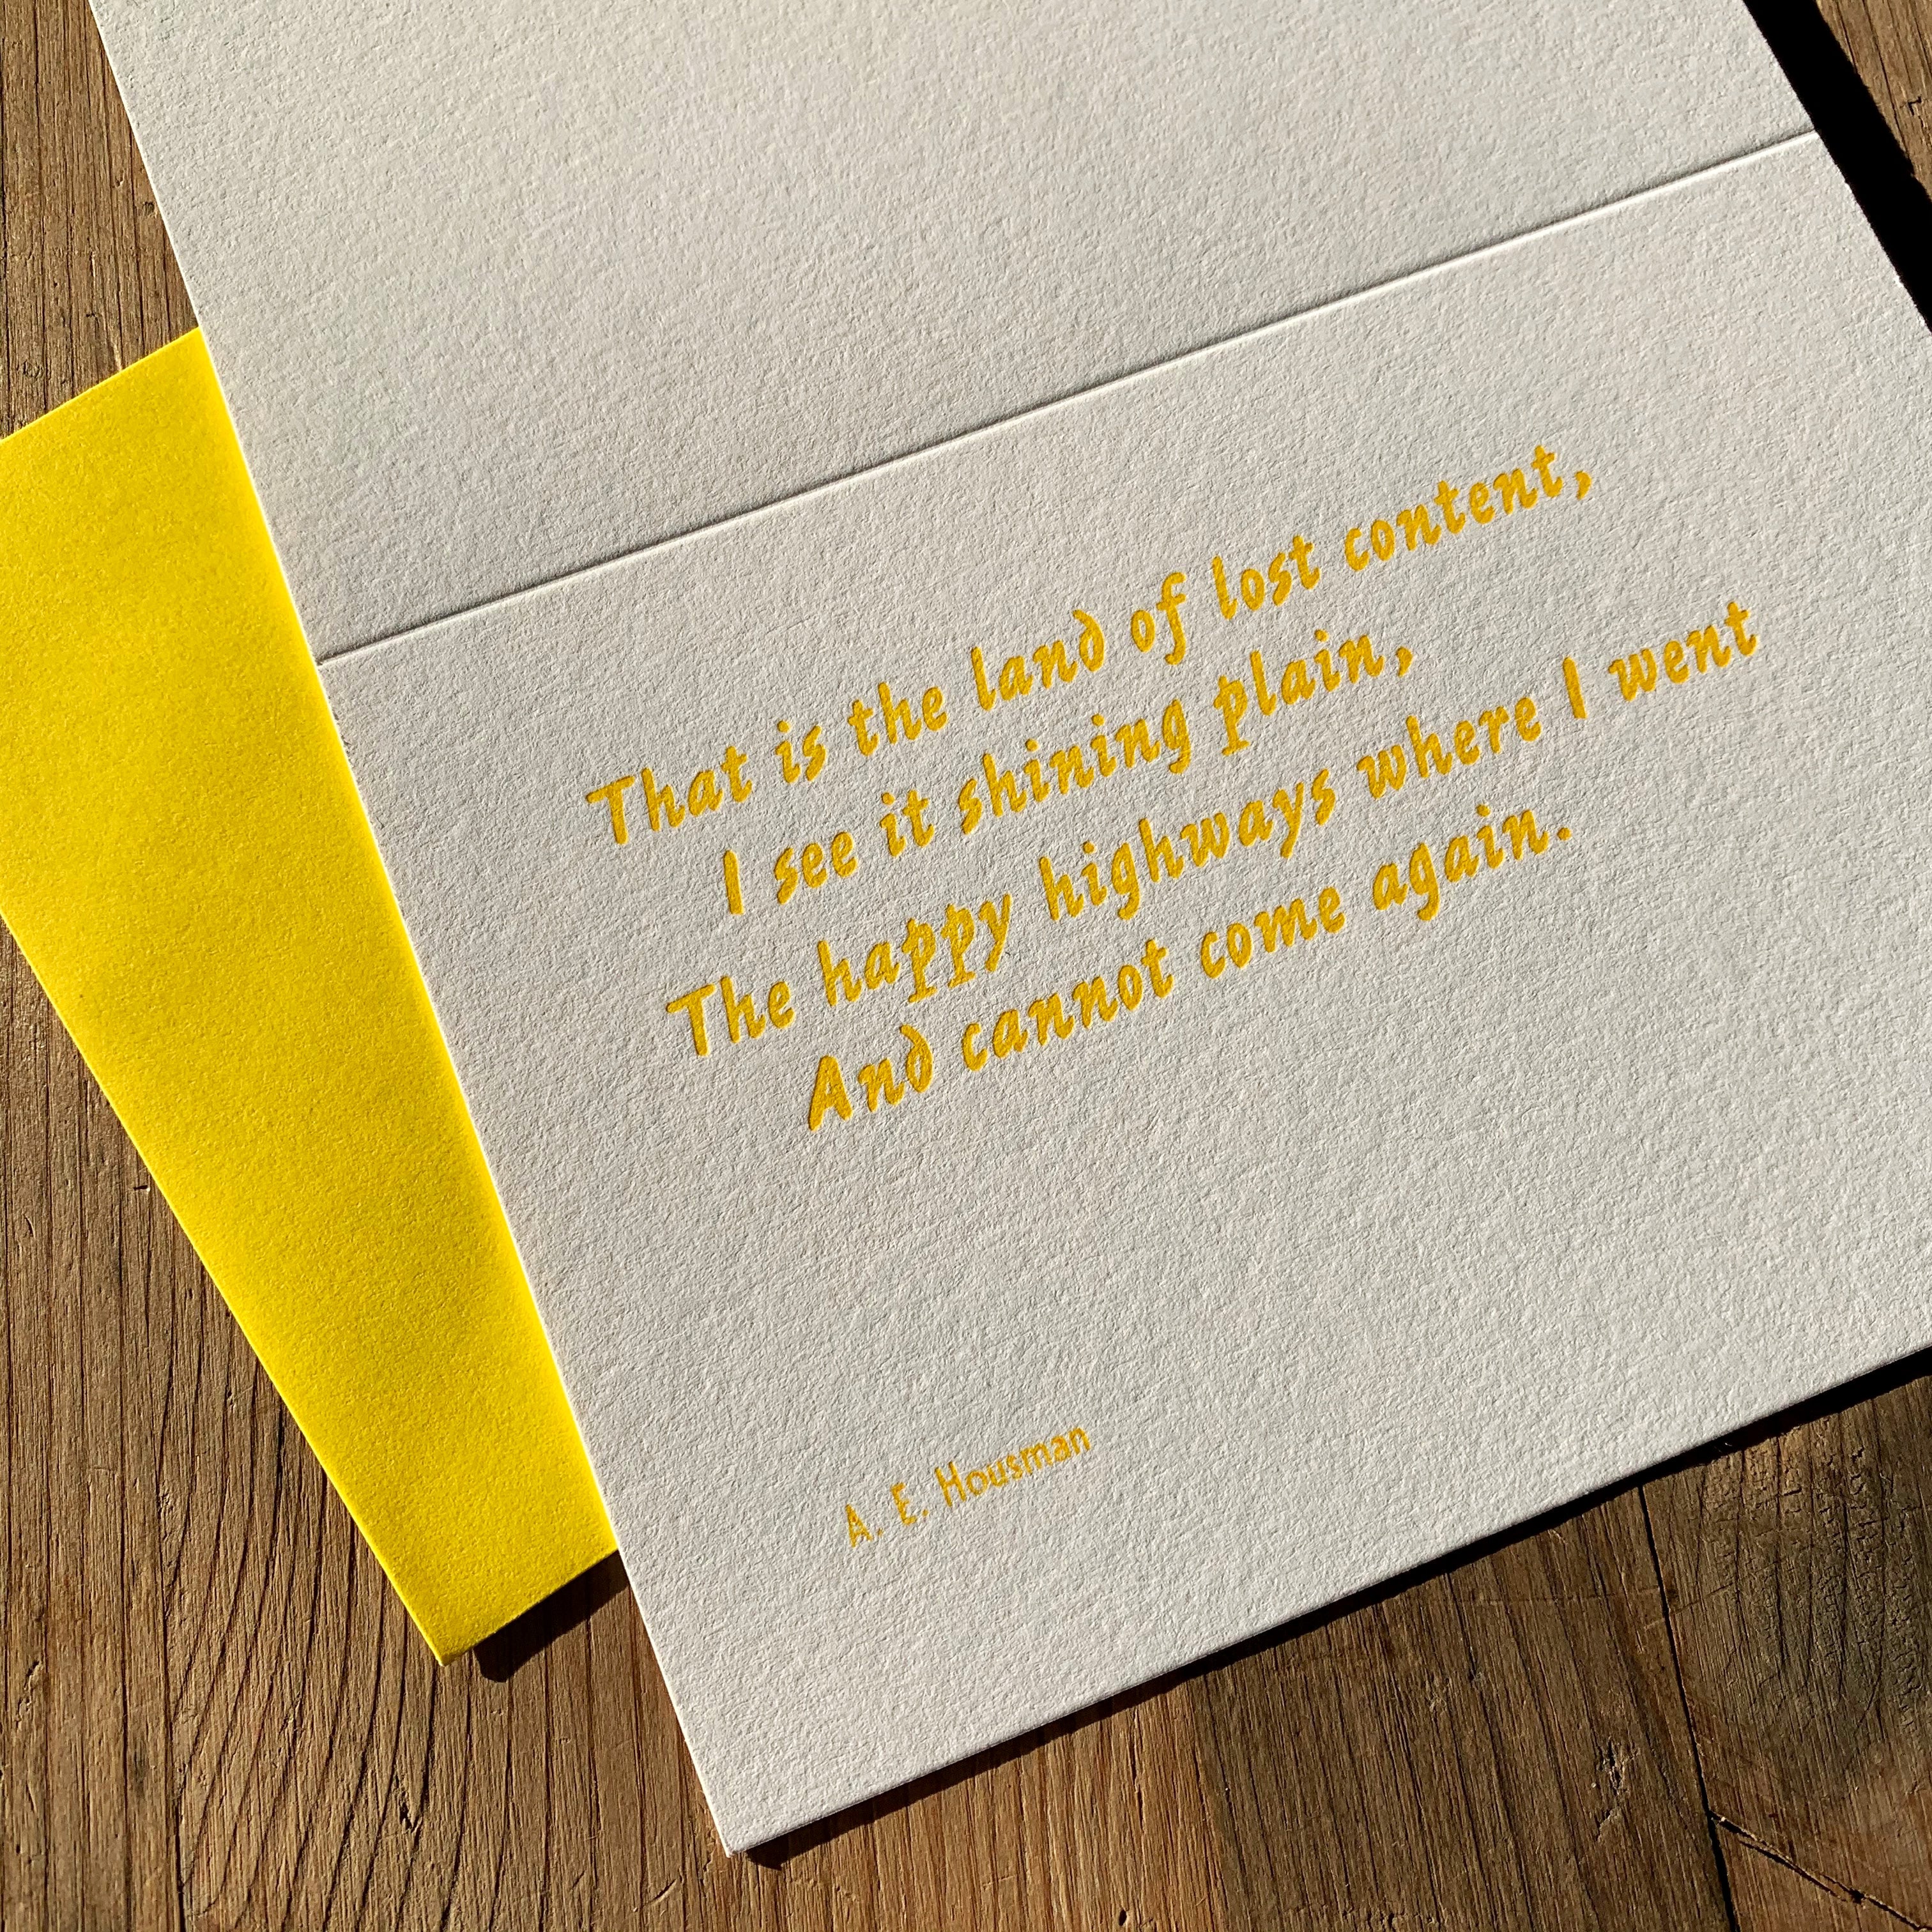 That is the land of lost content,
I see it shining plain,
The happy highways where I went
And cannot come again.
A. E. Housman